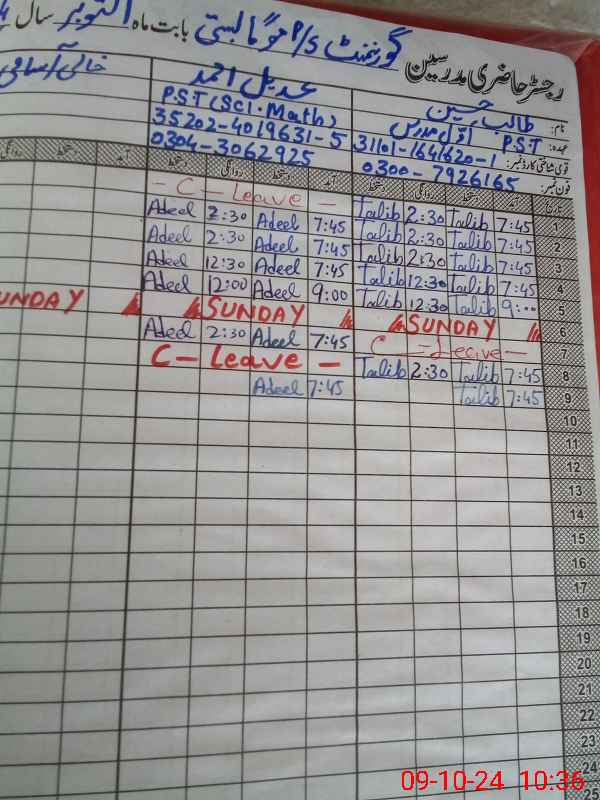 رجسٹر حاضری مدرسین گورنمنٹ P/S موگا بستی بابت ماہ اکتوبر سال
نام: طالب حسین عدیل احمد خالی آسامی
عہدہ: P.S.T اوّل مدرس P.S.T (SCI. Math)
قومی شناختی کارڈ نمبر: 31101-1641620-1 35202-4019631-5
فون نمبر: 0300-7926165 0304-3062925
تاریخ آمد دستخط روانگی دستخط آمد دستخط روانگی دستخط آمد دستخط روانگی
1 7:45 Talib 2:30 Talib - C - Leave -
2 7:45 Talib 2:30 Talib 7:45 Adeel 2:30 Adeel
3 7:45 Talib 2:30 Talib 7:45 Adeel 2:30 Adeel
4 7:45 Talib 12:30 Talib 7:45 Adeel 12:30 Adeel
5 9:00 Talib 12:30 Talib 9:00 Adeel 12:00 Adeel
6 SUNDAY SUNDAY SUNDAY
7 C - Leave - 7:45 Adeel 2:30 Adeel
8 7:45 Talib 2:30 Talib C - Leave -
9 7:45 Talib 7:45 Adeel
10
11
12
13
14
15
16
17
18
19
20
21
22
23
24
25
09-10-24 10:36